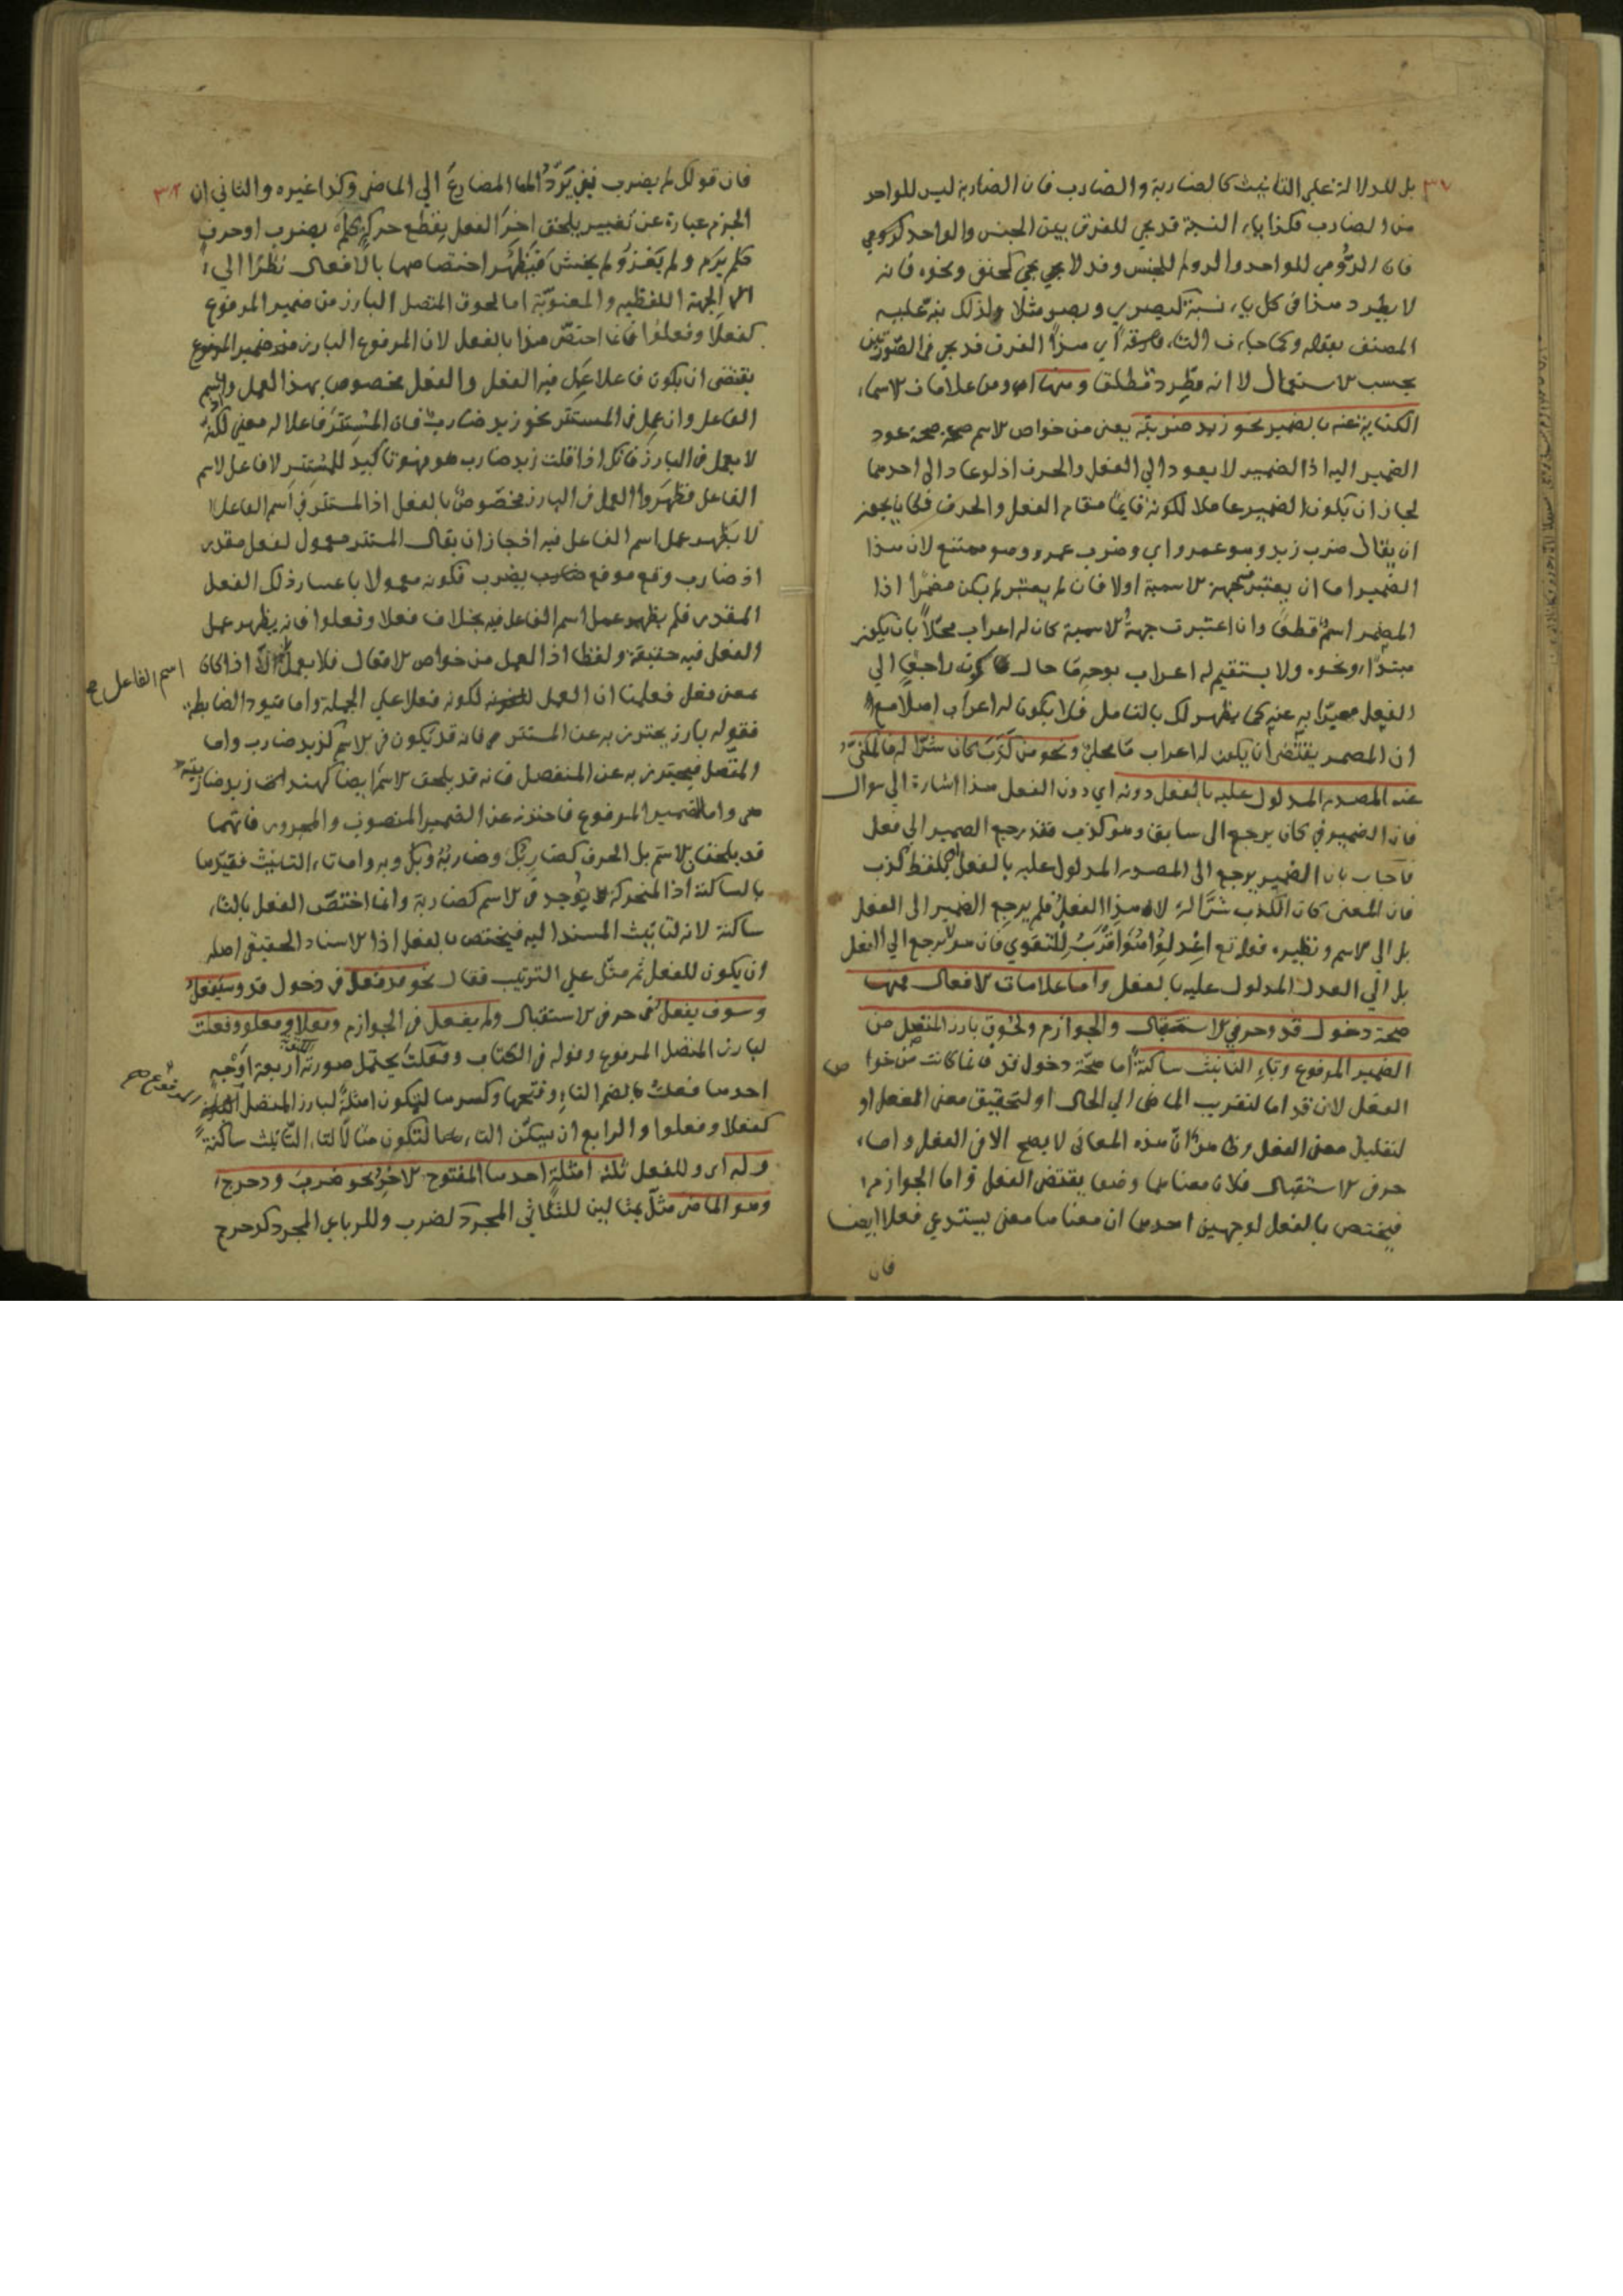 بل للدلالة على التانيث كالضاربة والضارب فان الضاربة ليس للواحد
من الضارب فكذا ياء النسبة قد يجي للفرق بين الجنس والواحد كرومي
فان الرومي للواحد والروم للجنس وقد لا يجي كحنفي ونحوه فانه
لا يطرد هذا في كل ياء نسبة كبصري وبصر مثلا ولذلك نبه عليه
المصنف بقوله وكما جاءت التاء فارقة اي هذا الفرق قد يجي في الصورتين
بحسب الاستعمال لا انه مطرد قطعا ومنها اي ومن علامات الاسماء
الكناية عنه بالضمير نحو زيد ضربته يعني من خواص الاسم صحة عود
الضمير اليه اذ الضمير لا يعود الى الفعل والحرف اذ لو عاد الى احدهما
لجاز ان يكون الضمير عاملا لكونه قايما مقام الفعل والحرف فكان يجوز
ان يقال ضرب زيد وهو عمرو اي وضرب عمرو وهو ممتنع لان هذا
الضمير اما ان يعتبر جهة الاسمية اولا فان لم يعتبر لم يكن مضمرا اذا
المضمر اسم قطعا وان اعتبرت جهة الاسمية كان له اعراب محلا بان يكون
مبتدا ونحوه ولا يستقيم له اعراب بوجه ما حال كونه راجعا الى
الفعل معبرا به عنه كما يظهر لك بالتامل فلا يكون له اعراب اصلا مع
ان المضمر يقتضي ان يكون له اعراب ما محلا ونحو من كذب كان شرا له فالمكني
عنه المصدر المدلول عليه بالفعل دونه اي دون الفعل هذا اشارة الى سوال
فان الضمير في كان يرجع الى سابق وهو كذب فقد يرجع الضمير الى فعل
فاجاب بان الضمير يرجع الى المصدر المدلول عليه بالفعل بلفظ كذب
فان المعنى كان الكذب شرا له لا هذا الفعل فلم يرجع الضمير الى الفعل
بل الى الاسم ونظيره قوله تع اعدلوا هو اقرب للتقوى فان هو لا يرجع الى الفعل
بل الى العدل المدلول عليه بالفعل واما علامات الافعال فمنها
صحة دخول قد وحرفي الاستقبال والجوازم ولحوق بارز المتصل من
الضمير المرفوع وتاء التانيث ساكنة اما صحة دخول قد فانما كانت من خوا ص
الفعل لان قد اما لتقريب الماضي الى الحال او لتحقيق معنى الفعل او
لتقليل معنى الفعل وظاهر ان هذه المعاني لا يصح الا في الفعل واما
حرفي الاستقبال فلان معناهما وضعا يقتضي الفعل واما الجوازم
فيختص بالفعل لوجهين احدهما ان معناها معنى يستدعي فعلا ايضا
فان
فان قولك لم يضرب نفي يرد المضارع الى الماضي وكذا غيره والثاني ان
الجزم عبارة عن تغيير يلحق اخر الفعل بقطع حركة كلم يضرب او حرف
كلم يرم ولم يغز ولم يخش فيظهر اختصاصها بالافعال نظرا الى
الجهة اللفظية والمعنوية اما لحوق المتصل البارز من ضمير المرفوع
كفعلا وفعلوا فانما اختص هذا بالفعل لان المرفوع البارز من ضمير المرفوع
يقتضي ان يكون فاعلا عمل فيه الفعل والفعل مخصوص بهذا العمل واسم
الفاعل وان عمل في المستتر نحو زيد ضارب فان المستتر فاعلا له معنى لكنه
لا يعمل في البارز فانك اذا قلت زيد ضارب هو فهو تاكيد للمستتر لا فاعل لاسم
الفاعل فظهر ان العمل في البارز مخصوص بالفعل اذ المستتر في اسم الفاعل
لا يظهر عمل اسم الفاعل فيه اذ جاز ان يقال المستتر معمول لفعل مقدر
اذ ضارب وقع موقع يضرب فكونه معمولا باعتبار ذلك الفعل
المقدر فلم يظهر عمل اسم الفاعل فيه بخلاف فعلا وفعلوا فانه يظهر عمل
الفعل فيه حقيقة ولفظا اذ العمل من خواص الافعال فلا يعمل الا اذا كان
اسم الفاعل صح
بمعنى فعل فعلمنا ان العمل لكونه فعلا على الجملة واما قيود الضابطة
فقوله بارز يحترز به عن المستتر فانه قد يكون في الاسم كزيد ضارب واما
المتصل فيحترز به عن المنفصل فانه قد يلحق الاسم ايضا كهند زيد ضاربته
هي واما الضمير المرفوع فاحترز عن الضمير المنصوب والمجرور فانهما
قد يلحقان الاسم بل الحرف كضاربك وضاربه وبك وبه واما تاء التانيث فقيدها
بالساكنة اذ المتحركة يوجد في الاسم كضاربة وانما اختص الفعل بالتاء
ساكنة لانه لتانيث المسند اليه فيختص بالفعل اذ الاسناد الحقيقي اصله
ان يكون للفعل ثم مثل على الترتيب فقال نحو قد فعل في دخول قد وسيفعل
وسوف يفعل في حرفي الاستقبال ولم يفعل في الجوازم وفعلا وفعلوا وفعلت
لبارز المتصل المرفوع وقوله في الكتاب وفعلت يحتمل صورته اربعة اوجه
احدها فعلت بالضم التاء وفتحها وكسرها ليكون امثلة لبارز المتصل
المرفوع صح
كفعلا وفعلوا والرابع ان يسكن التاء لتكون مثالا لتاء التانيث ساكنة
وله اي وللفعل ثلثة امثلة احدها المفتوح الاخر نحو ضرب ودحرج
وهو الماضي مثل بمثالين للثلاثي المجرد كضرب وللرباعي المجرد كدحرج